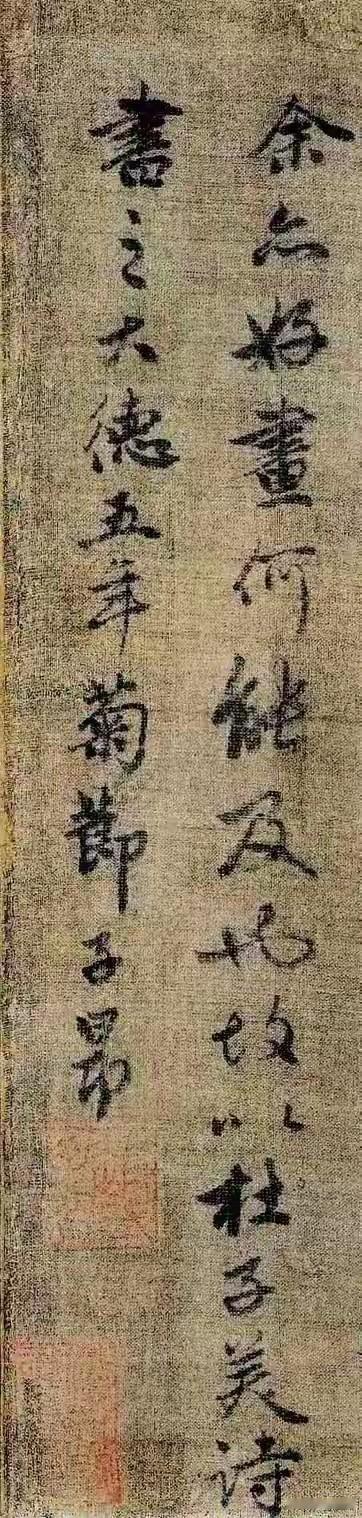 余亦好畫何能及此故以杜子美詩
書之大德五年菊節子昂